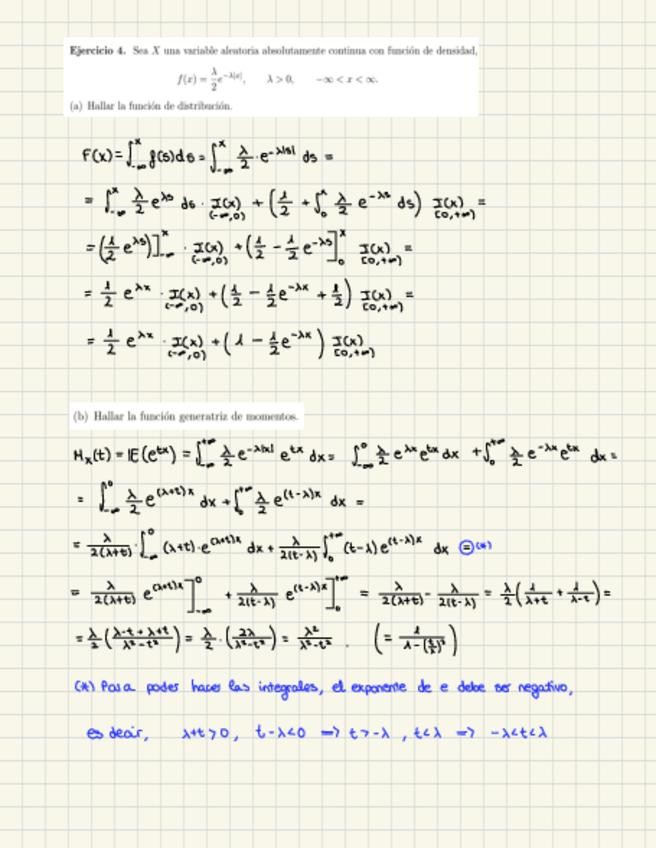 Ejercicio 4. Sea X una variable aleatoria absolutamente continua con función de densidad,
f(x) = λ/2 e^{-λ|x|}, λ > 0, -∞ < x < ∞.
(a) Hallar la función de distribución.
F(x) = ∫_{-∞}^{x} f(s) ds = ∫_{-∞}^{x} λ/2 · e^{-λ|s|} ds =
= ∫_{-∞}^{x} λ/2 e^{λs} ds · I(x)_{(-∞,0)} + (1/2 + ∫_0^x λ/2 e^{-λs} ds) I(x)_{[0,+∞)} =
= (1/2 e^{λs})]_{-∞}^{x} · I(x)_{(-∞,0)} + (1/2 - 1/2 e^{-λs}]_0^x I(x)_{[0,+∞)} =
= 1/2 e^{λx} · I(x)_{(-∞,0)} + (1/2 - 1/2 e^{-λx} + 1/2) I(x)_{[0,+∞)} =
= 1/2 e^{λx} · I(x)_{(-∞,0)} + (1 - 1/2 e^{-λx}) I(x)_{[0,+∞)}
(b) Hallar la función generatriz de momentos.
M_X(t) = IE(e^{tx}) = ∫_{-∞}^{+∞} λ/2 e^{-λ|x|} e^{tx} dx = ∫_{-∞}^{0} λ/2 e^{λx} e^{tx} dx + ∫_0^{+∞} λ/2 e^{-λx} e^{tx} dx =
= ∫_{-∞}^{0} λ/2 e^{(λ+t)x} dx + ∫_0^{+∞} λ/2 e^{(t-λ)x} dx =
= λ/2(λ+t) · ∫_{-∞}^{0} (λ+t) · e^{(λ+t)x} dx + λ/2(t-λ) ∫_0^{+∞} (t-λ) e^{(t-λ)x} dx = (*)
= λ/2(λ+t) e^{(λ+t)x}]_{-∞}^{0} + λ/2(t-λ) e^{(t-λ)x}]_0^{+∞} = λ/2(λ+t) - λ/2(t-λ) = λ/2 (1/λ+t + 1/λ-t) =
= λ/2 (λ-t+λ+t/λ²-t²) = λ/2 · (2λ/λ²-t²) = λ²/λ²-t² . (= 1/1-(t/λ)²)
(*) Para poder hacer las integrales, el exponente de e debe ser negativo,
es decir, λ+t>0, t-λ<0 => t>-λ, t<λ => -λ<t<λ